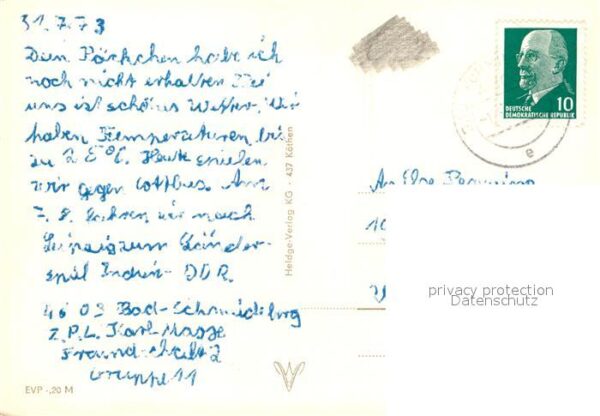 31.7.73
Dein Pärkchen habe ich
noch nicht erhalten Bei
uns ist schönes Wetter. Wir
haben Temperaturen bis
zu 25°C. Heute spielen
wir gegen Cottbus. Am
7. 8. fahren wir nach
Leipzig zum Länder-
spiel Indien - DDR.
4603 Bad-Schmiedeberg
Z.P.L. Karl-Marx
Freundschaft 2
Gruppe 11
EVP -,20 M
Heldge-Verlag KG · 437 Köthen
DEUTSCHE
DEMOKRATISCHE REPUBLIK
10
e
An
privacy protection
Datenschutz